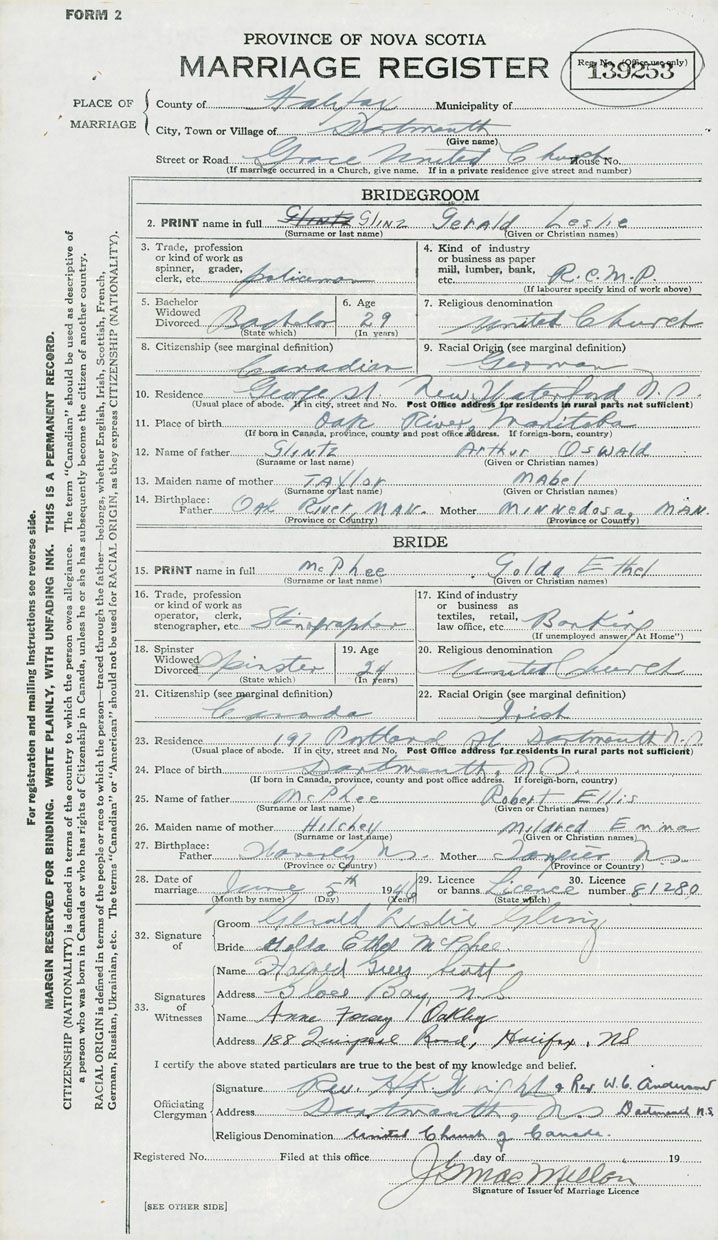 FORM 2
PROVINCE OF NOVA SCOTIA
MARRIAGE REGISTER
Reg. No. (Office use only)
139253
PLACE OF MARRIAGE
County of Halifax Municipality of
City, Town or Village of Dartmouth
(Give name)
Street or Road Grace United Church House No.
(If marriage occurred in a Church, give name. If in a private residence give street and number)
BRIDEGROOM
2. PRINT name in full GLINTZ GLINZ Gerald Leslie
(Surname or last name) (Given or Christian names)
3. Trade, profession or kind of work as spinner, grader, clerk, etc. policeman
4. Kind of industry or business as paper mill, lumber, bank, etc. R.C.M.P.
(If labourer specify kind of work above)
5. Bachelor Widowed Divorced Bachelor
(State which)
6. Age 29
(In years)
7. Religious denomination United Church
8. Citizenship (see marginal definition) Canadian
9. Racial Origin (see marginal definition) German
10. Residence George St. New Waterford N.S.
(Usual place of abode. If in city, street and No. Post Office address for residents in rural parts not sufficient)
11. Place of birth Oak River, Manitoba
(If born in Canada, province, county and post office address. If foreign-born, country)
12. Name of father GLINTZ Arthur Oswald
(Surname or last name) (Given or Christian names)
13. Maiden name of mother TAYlor Mabel
(Surname or last name) (Given or Christian names)
14. Birthplace: Father Oak River, MAN. Mother Minnedosa, MAN.
(Province or Country) (Province or Country)
BRIDE
15. PRINT name in full McPhee Golda Ethel
(Surname or last name) (Given or Christian names)
16. Trade, profession or kind of work as operator, clerk, stenographer, etc Stenographer
17. Kind of industry or business as textiles, retail, law office, etc. Banking
(If unemployed answer "At Home")
18. Spinster Widowed Divorced Spinster
(State which)
19. Age 24
(In years)
20. Religious denomination United Church
21. Citizenship (see marginal definition) Canada
22. Racial Origin (see marginal definition) Irish
23. Residence 197 Portland St. Dartmouth N.S.
(Usual place of abode. If in city, street and No. Post Office address for residents in rural parts not sufficient)
24. Place of birth Dartmouth, N.S.
(If born in Canada, province, county and post office address. If foreign-born, country)
25. Name of father McPhee Robert Ellis
(Surname or last name) (Given or Christian names)
26. Maiden name of mother Hilchey Mildred Emma
(Surname or last name) (Given or Christian names)
27. Birthplace: Father Waverly N.S. Mother Tangier N.S.
(Province or Country) (Province or Country)
28. Date of marriage June 5th 19
(Month by name) (Day) (Year)
29. Licence or banns Licence
(State which)
30. Licence number 81280
32. Signature of
Groom Gerald Leslie Glinz
Bride Golda Ethel McPhee.
33. Signatures of Witnesses
Name Scott
Address Glace Bay, N.S
Name Anne Oakley
Address 188 Quinpool Road, Halifax, NS
I certify the above stated particulars are true to the best of my knowledge and belief.
Officiating Clergyman
Signature Rev. H.K. Wright & Rev. W.C. Anderson
Address Dartmouth, N.S Dartmouth N.S.
Religious Denomination United Church of Canada.
Registered No. Filed at this office day of 19
Signature of Issuer of Marriage Licence
[SEE OTHER SIDE]
For registration and mailing instructions see reverse side.
MARGIN RESERVED FOR BINDING. WRITE PLAINLY, WITH UNFADING INK. THIS IS A PERMANENT RECORD.
CITIZENSHIP (NATIONALITY) is defined in terms of the country to which the person owes allegiance. The term "Canadian" should be used as descriptive of
a person who was born in Canada or who has rights of Citizenship in Canada, unless he or she has subsequently become the citizen of another country.
RACIAL ORIGIN is defined in terms of the people or race to which the person—traced through the father—belongs, whether English, Irish, Scottish, French,
German, Russian, Ukrainian, etc. The terms "Canadian" or "American" should not be used for RACIAL ORIGIN, as they express CITIZENSHIP (NATIONALITY).